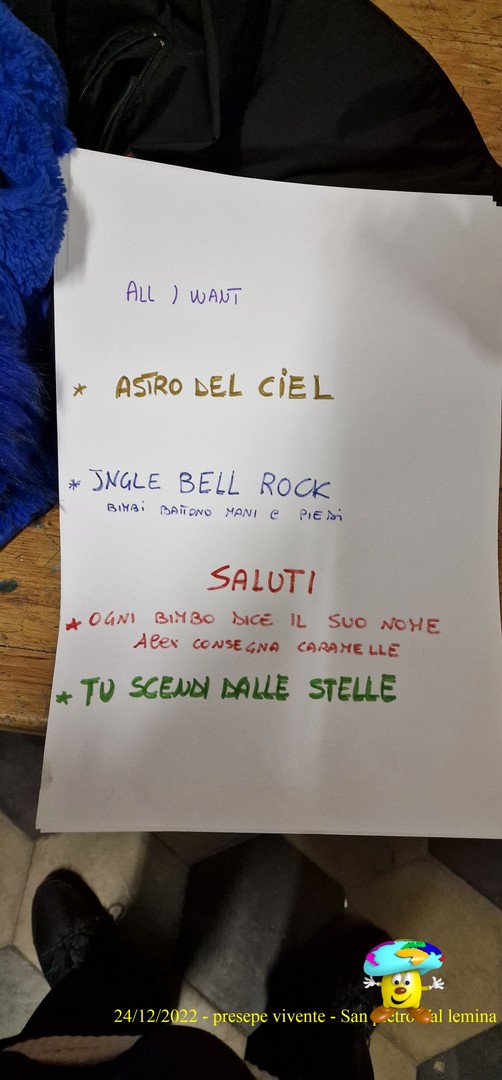 ALL I WANT
* ASTRO DEL CIEL
* JNGLE BELL ROCK
BIMBI BATTONO MANI E PIEDI
SALUTI
* OGNI BIMBO DICE IL SUO NOME
Alex CONSEGNA CARAMELLE
* TU SCENDI DALLE STELLE
24/12/2022 - presepe vivente - San pietro val lemina